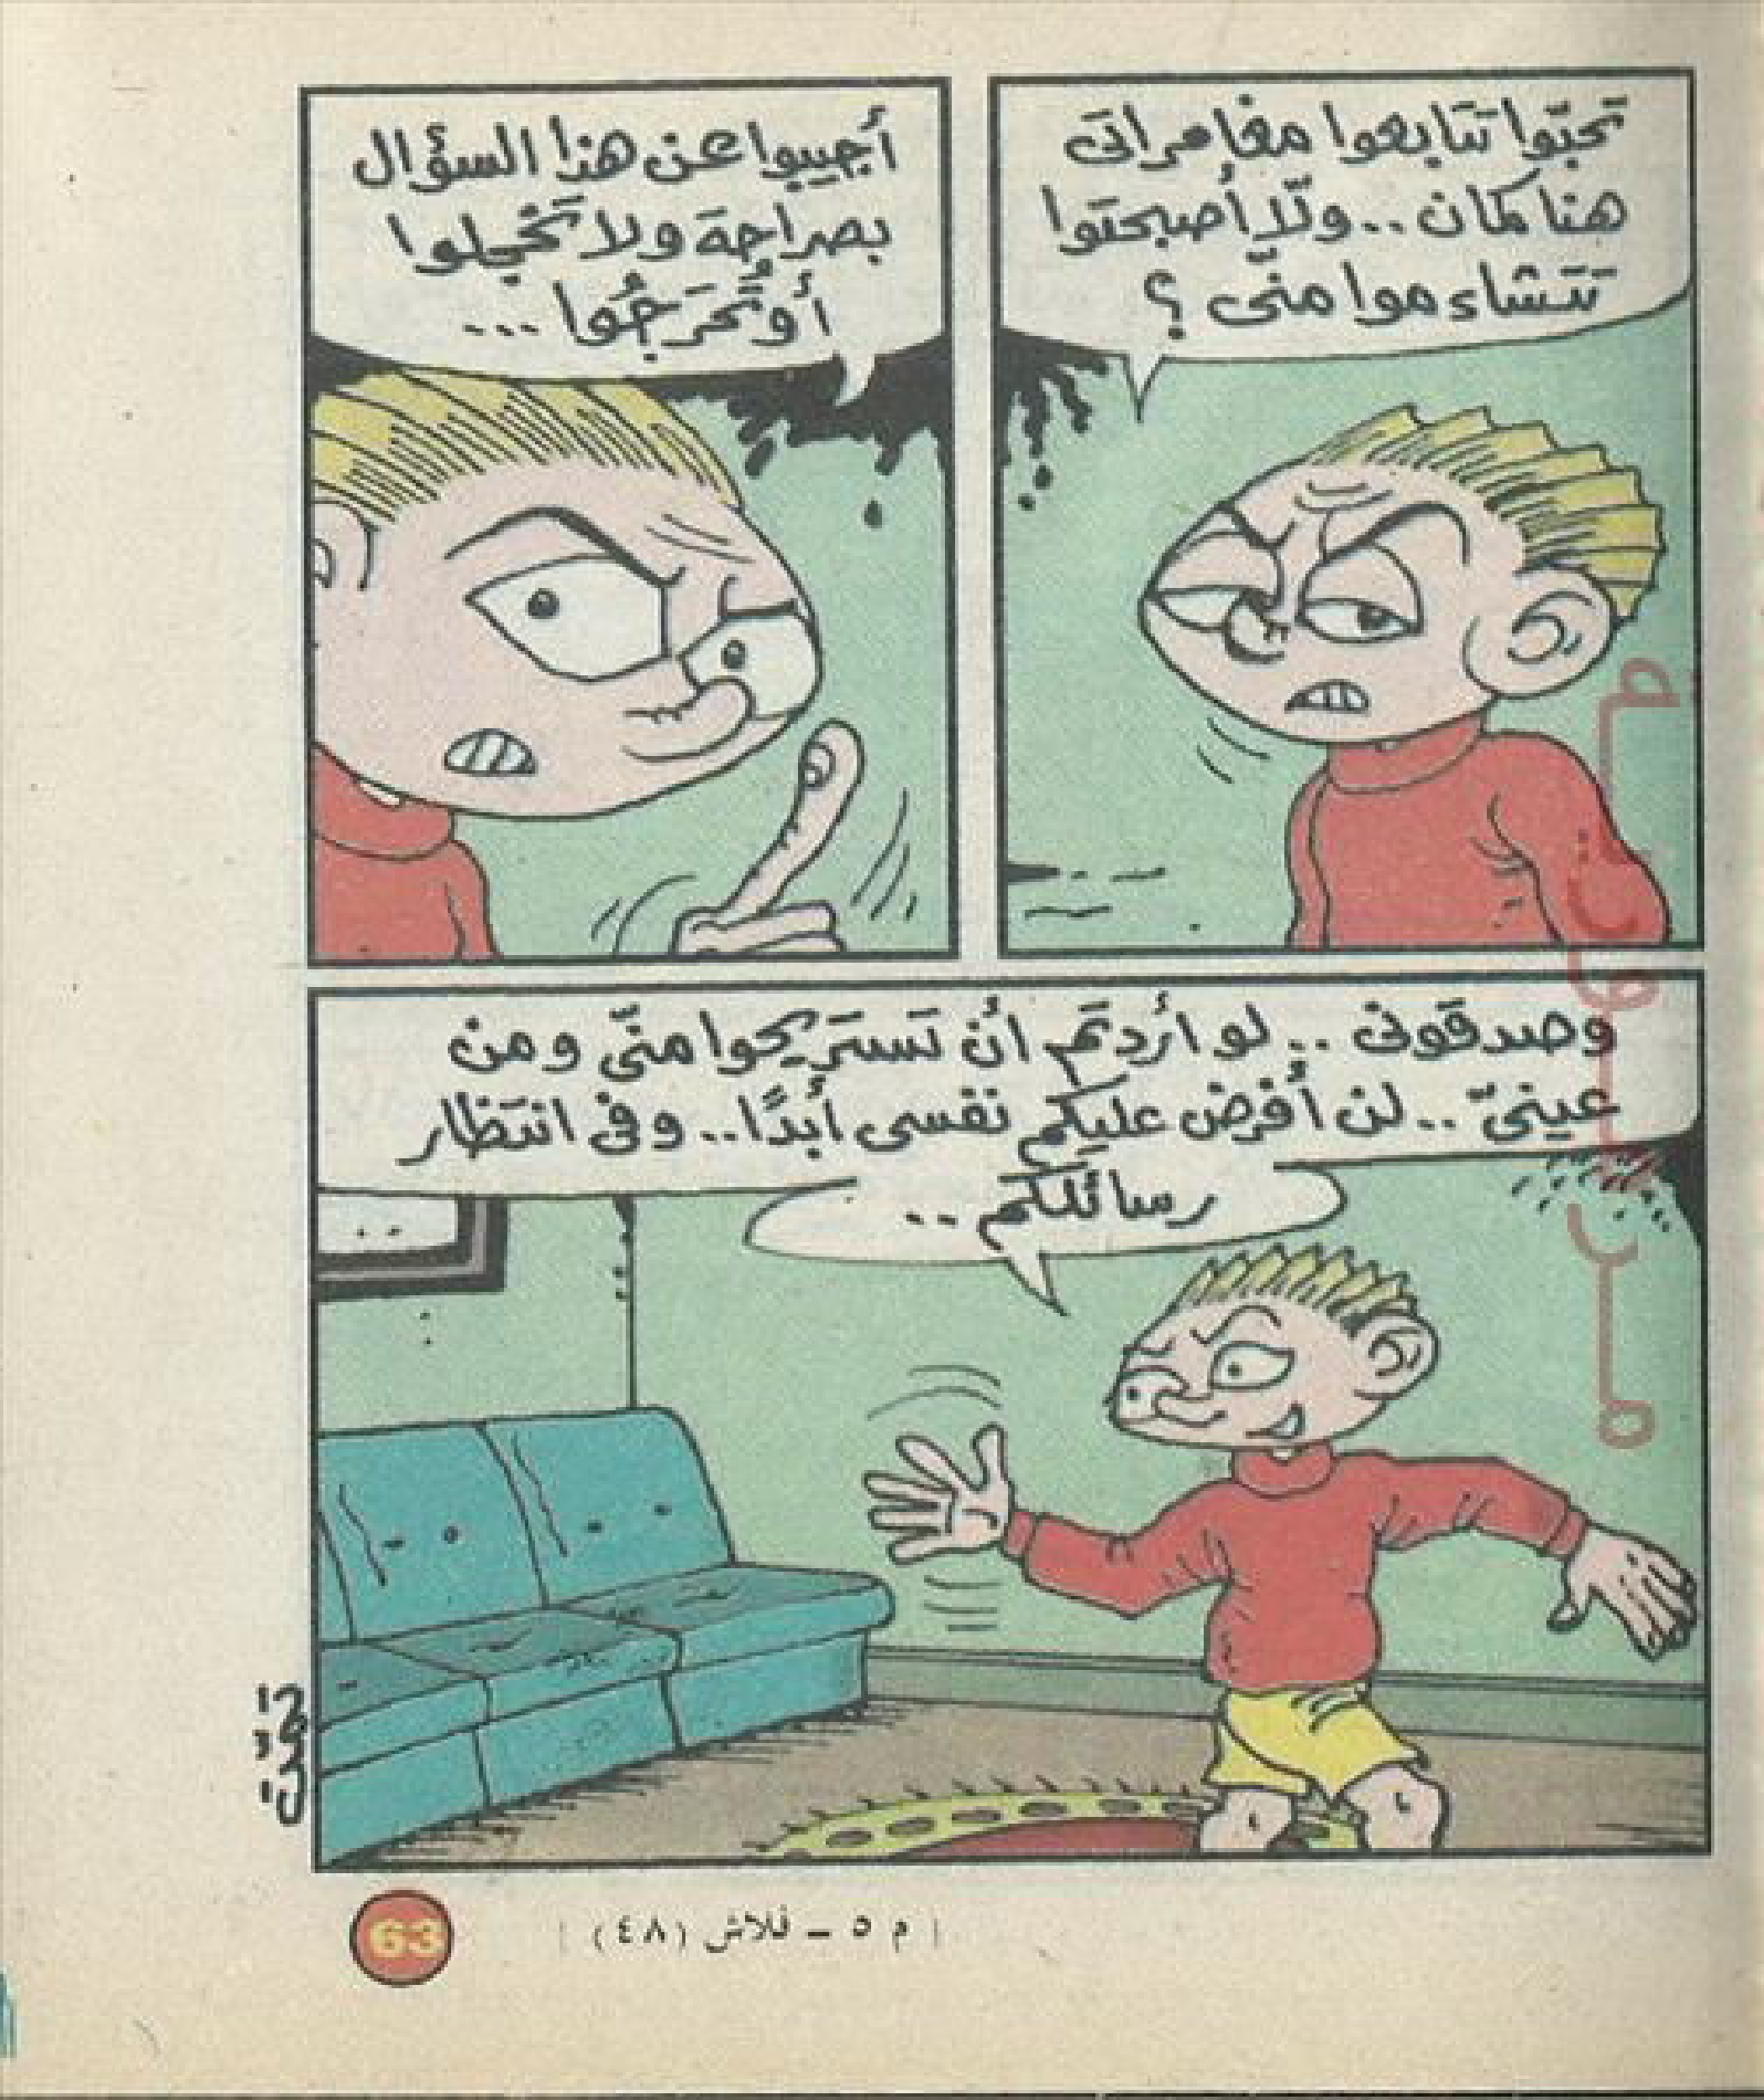 تحبّوا تتابعوا مغامراتى
هنا كمان .. ولّا أصبحتوا
تتشاءموا منّى ؟
أجيبوا عن هذا السؤال
بصراحة ولا تَخْجلوا
أو تُحْرَجُوا ...
وصدقونى .. لو أردتم أن تَستريحوا منّى ومن
عينىّ .. لن أفرض عليكم نفسى أبدًا .. وفى انتظار
رسائلكم ..
م ٥ ــ فلاش (٤٨)
63